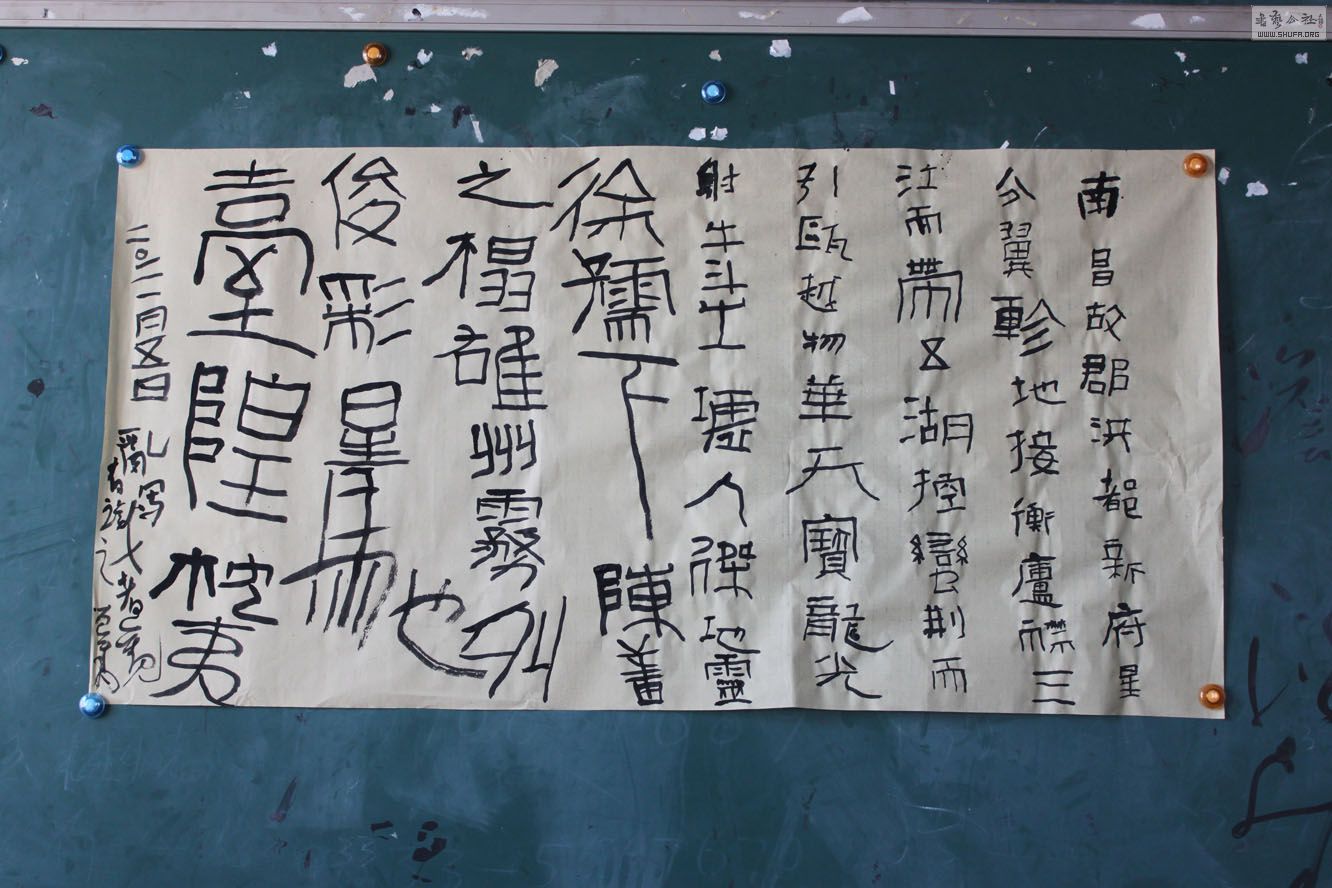 書藝公社
WWW.SHUFA.ORG
南昌故郡洪都新府星
分翼軫地接衡廬襟三
江而帶五湖控蠻荆而
引甌越物華天寶龍光
射牛斗之墟人傑地靈
徐孺下陳蕃
之榻雄州霧列
俊彩星馳
臺隍枕夷
月五日 乱写